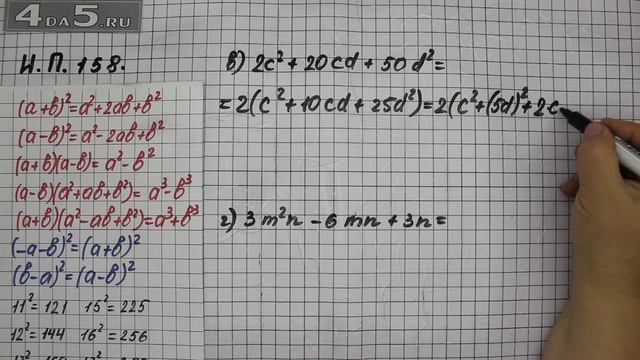 4DA5.RU
И.П. 158.
(a+b)²=a²+2ab+b²
(a-b)²=a²-2ab+b²
(a+b)(a-b)=a²-b²
(a-b)(a²+ab+b²)=a³-b³
(a+b)(a²-ab+b²)=a³+b³
(-a-b)²=(a+b)²
(b-a)²=(a-b)²
11²=121 15²=225
12²=144 16²=256
в) 2c²+20cd+50d²=
=2(c²+10cd+25d²)=2(c²+(5d)²+2c
г) 3m²n-6mn+3n=